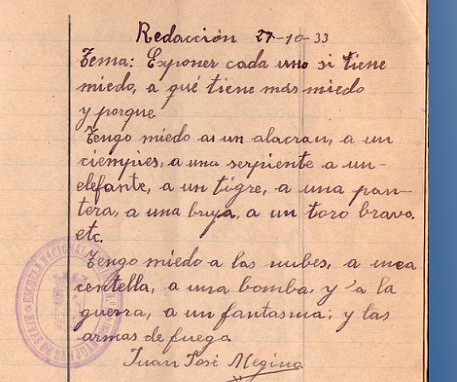 Redacción 27-10-33
Tema: Exponer cada uno si tiene
miedo, a qué tiene más miedo
y porque
Tengo miedo a un alacran, a un
ciempies, a una serpiente a un
elefante, a un tigre, a una pan-
tera, a una bruja, a un toro bravo.
etc.
Tengo miedo a las nubes, a una
centella, a una bomba, y a la
guerra, a un fantasma; y las
armas de fuego
Juan José Megina
ESCUELA NACIONAL